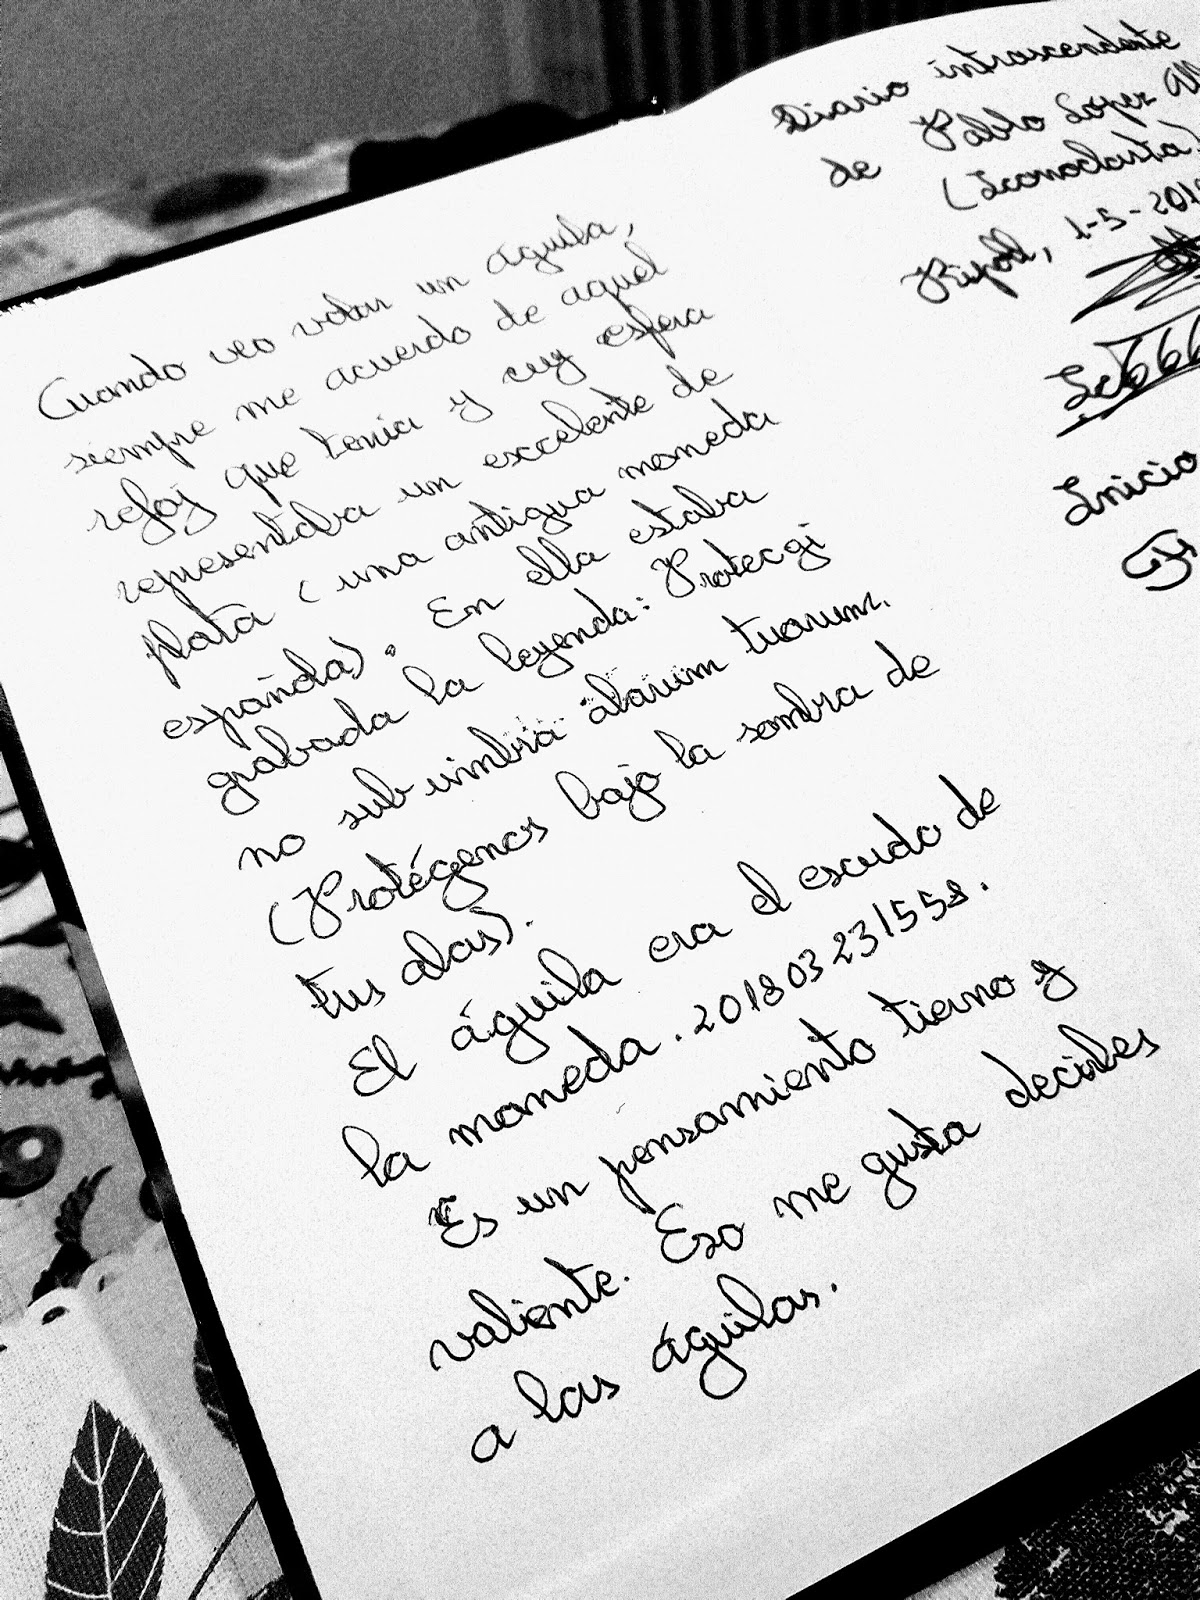 Cuando veo volar un águila,
siempre me acuerdo de aquel
reloj que tenía y cuy esfera
representaba un excelente de
plata (una antigua moneda
española). En ella estaba
grabada la leyenda: Protecgi
no sub umbra alarum tuarum.
(Protégenos bajo la sombra de
tus alas).
El águila era el escudo de
la moneda. 201803231558.
Es un pensamiento tierno y
valiente. Eso me gusta decirles
a las águilas.
Diario intrascendente
de Pablo López
(Iconoclasta)
Ripoll, 1-5-201
666
Inicio